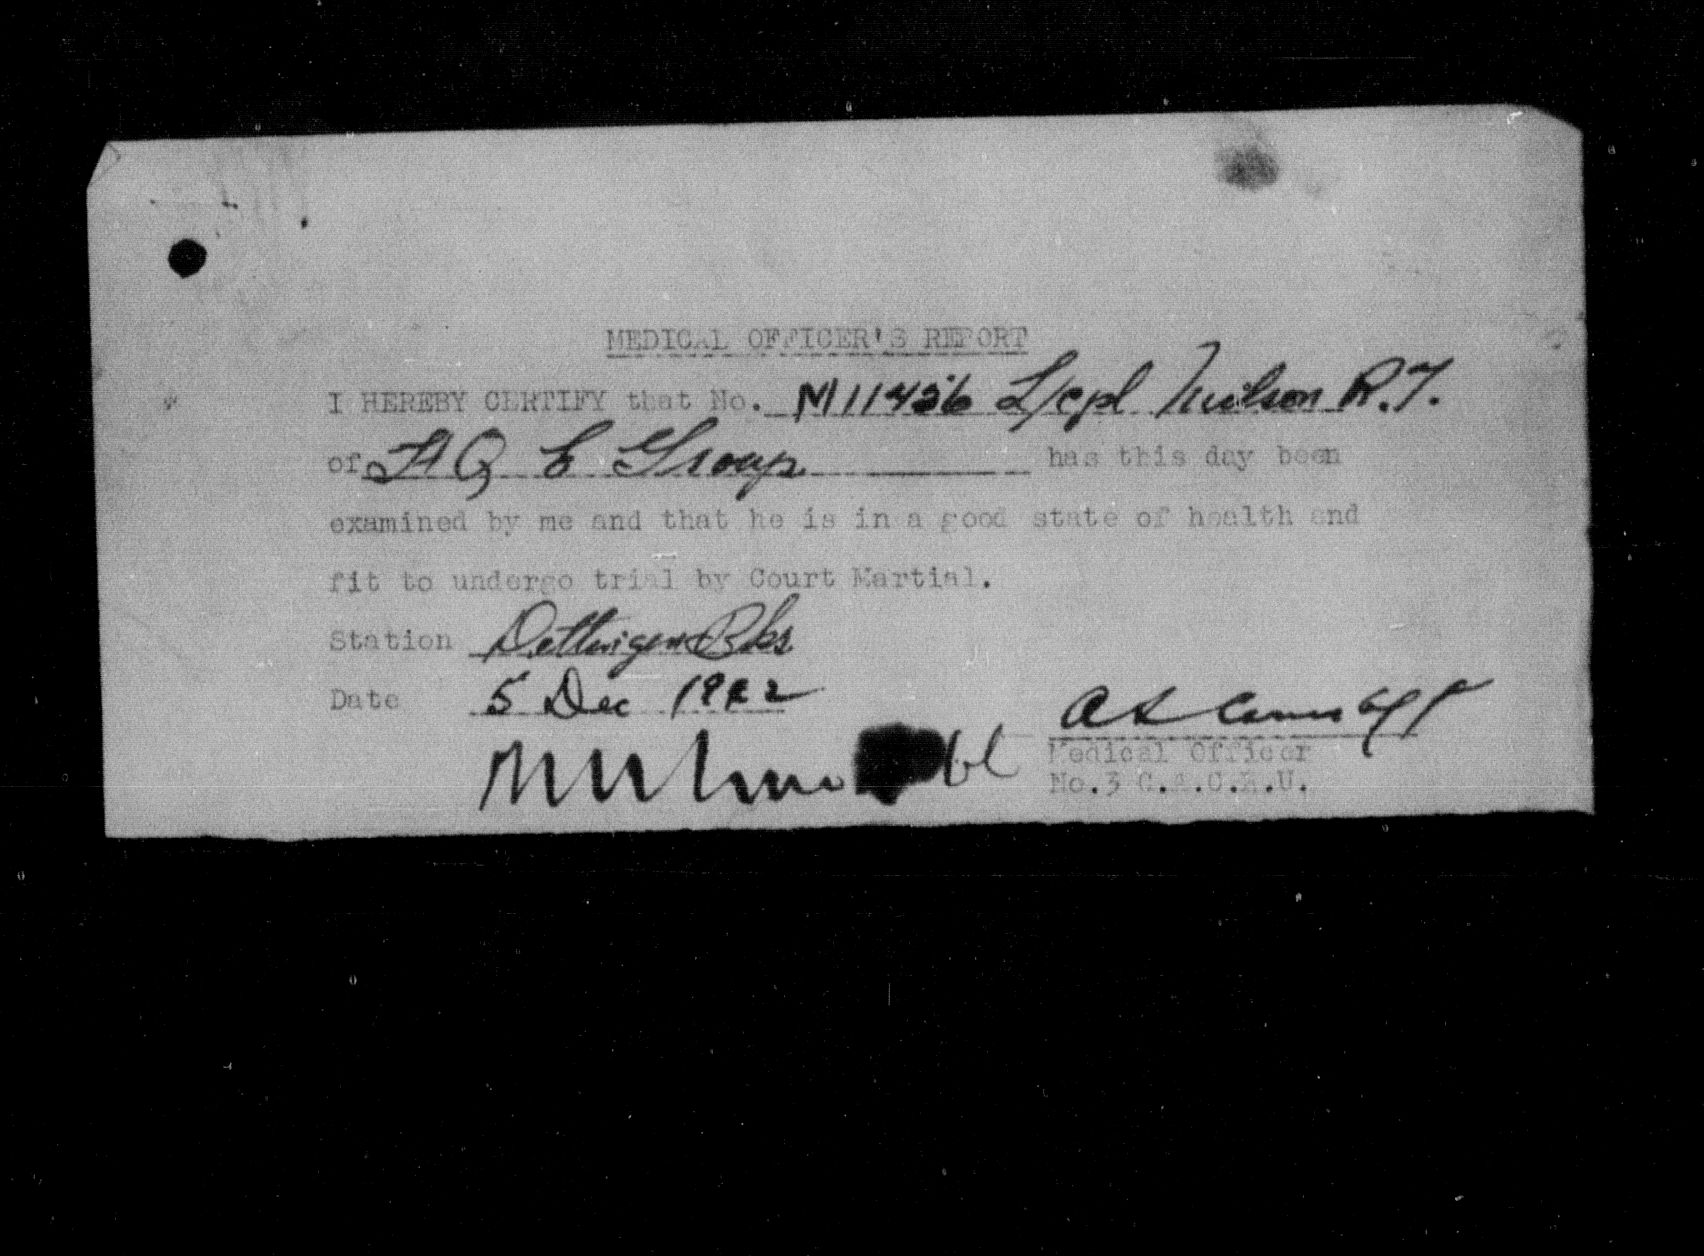 MEDICAL OFFICER'S REPORT
I HEREBY CERTIFY that No. M11426 L/cpl Neilson R.T.
of HQ E Group has this day been
examined by me and that he is in a good state of health and
fit to undergo trial by Court Martial.
Station Dettingen Bks
Date 5 Dec 1942
Medical Officer
No.3 C.A.C.R.U.